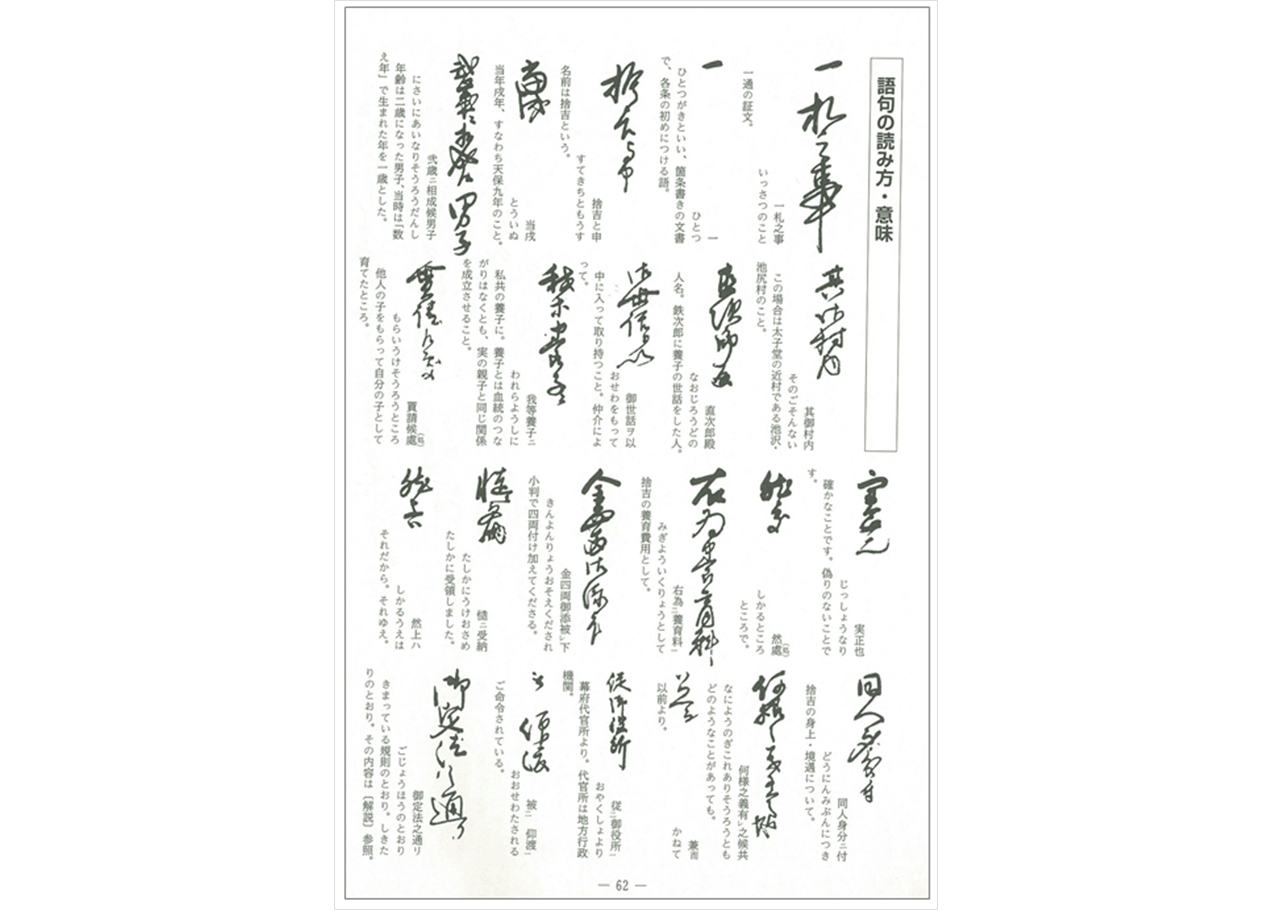 語句の読み方・意味
一札之事
一札之事
いっさつのこと
一通の証文。
一
一
ひとつ
ひとつがきといい、箇条書きの文書
で、各条の初めにつける語。
捨吉と申
捨吉と申
すてきちともうす
名前は捨吉という。
当戌
当戌
とういぬ
当年戌年、すなわち天保九年のこと。
弐歳ニ相成候男子
弐歳ニ相成候男子
にさいにあいなりそうろうだんし
年齢は二歳になった男子、当時は「数
え年」で生まれた年を一歳とした。
其御村内
其御村内
そのごそんない
この場合は太子堂の近村である池沢・
池尻村のこと。
直次郎殿
直次郎殿
なおじろうどの
人名。鉄次郎に養子の世話をした人。
御世話ヲ以
御世話ヲ以
おせわをもって
中に入って取り持つこと。仲介によ
って。
我等養子ニ
我等養子ニ
われらようしに
私共の養子に。養子とは血統のつな
がりはなくとも、実の親子と同じ関係
を成立させること。
貰請候處
貰請候處(処)
もらいうけそうろうところ
他人の子をもらって自分の子として
育てたところ。
実正也
実正也
じっしょうなり
確かなことです。偽りのないことで
す。
然處
然處(処)
しかるところ
ところで。
右為養育料
右為ニ養育料一
みぎよういくりょうとして
捨吉の養育費用として。
金四両御添被下
金四両御添被レ下
きんよんりょうおそえくだされ
小判で四両付け加えてくださる。
慥ニ受納
慥ニ受納
たしかにうけおさめ
たしかに受領しました。
然上ハ
然上ハ
しかるうえは
それだから。それゆえ。
同人身分ニ付
同人身分ニ付
どうにんみぶんにつき
捨吉の身上・境遇について。
何様之義有之候共
何様之義有レ之候共
なにようのぎこれありそうろうとも
どのようなことがあっても。
兼而
兼而
かねて
以前より。
従御役所
従ニ御役所一
おやくしょより
幕府代官所より。代官所は地方行政
機関。
被仰渡
被ニ仰渡一
おおせわたされる
ご命令されている。
御定法之通り
御定法之通リ
ごじょうほうのとおり
きまっている規則のとおり。しきた
りのとおり。その内容は〔解説〕参照。
— 62 —